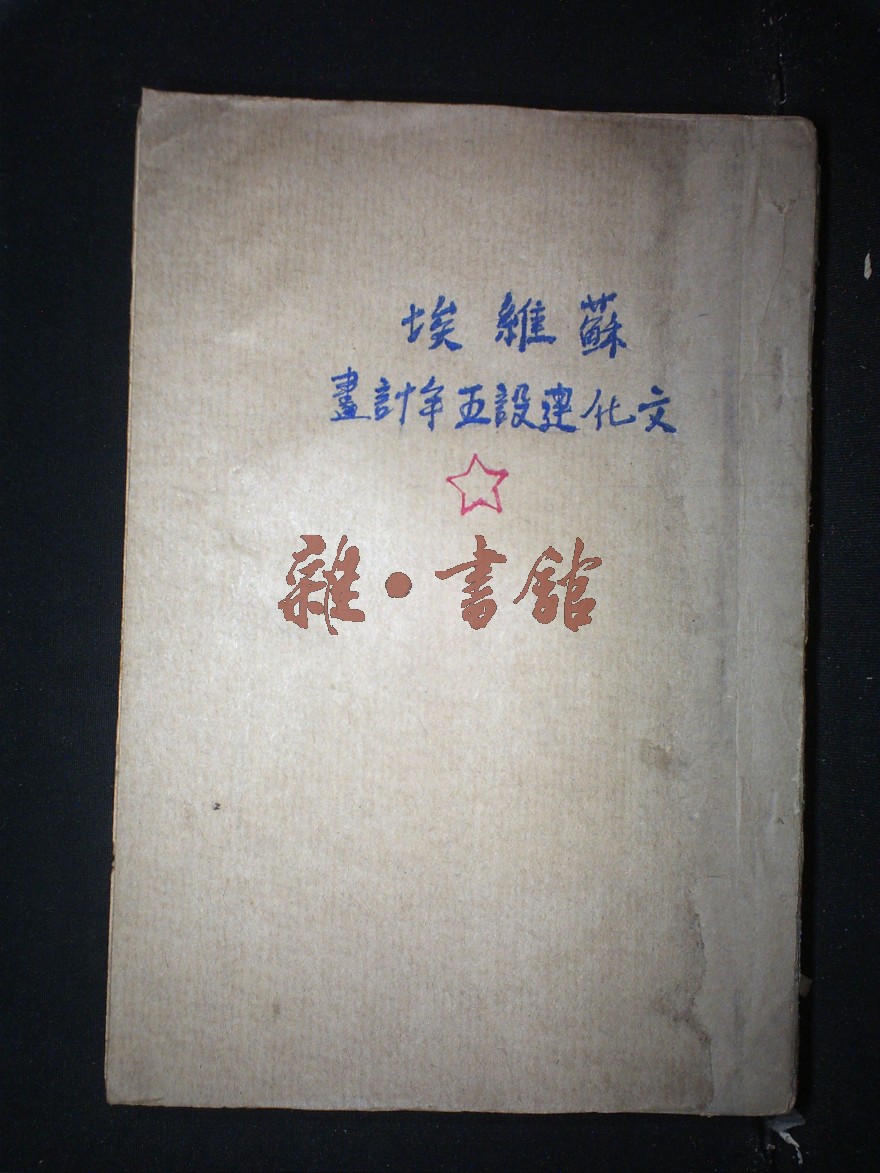 蘇維埃
文化建設五年計畫
雜·書館